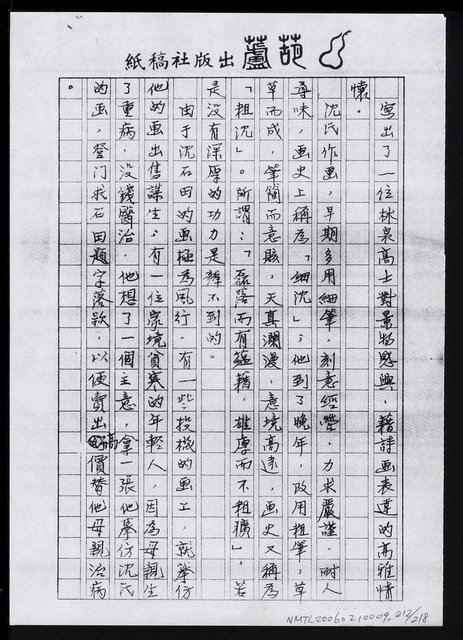 葫蘆出版社稿紙
寫出了一位林泉高士對景物感興，藉詩画表達的高雅情
懷。
沈氏作画，早期多用細筆，刻意經營，力求嚴謹，耐人
尋味，画史上稱為「細沈」；他到了晚年，改用粗筆，草
草而成，筆簡而意賅，天真瀾漫，意境高遠，画史又稱為
「粗沈」。所謂：「磊落而有蘊藉，雄厚而不粗獷」，若
是没有深厚的功力是辦不到的。
由于沈石田的画極為風行，有一些投機的画工，就摹仿
他的画出售謀生；有一位家境貧寒的年輕人，因為母親生
了重病，没錢醫治，他想了一個主意，拿一張他摹仿沈氏
的画，登門求石田題字落款，以便賣出高價替他母親治病
。
NMTL20060210009.212/218